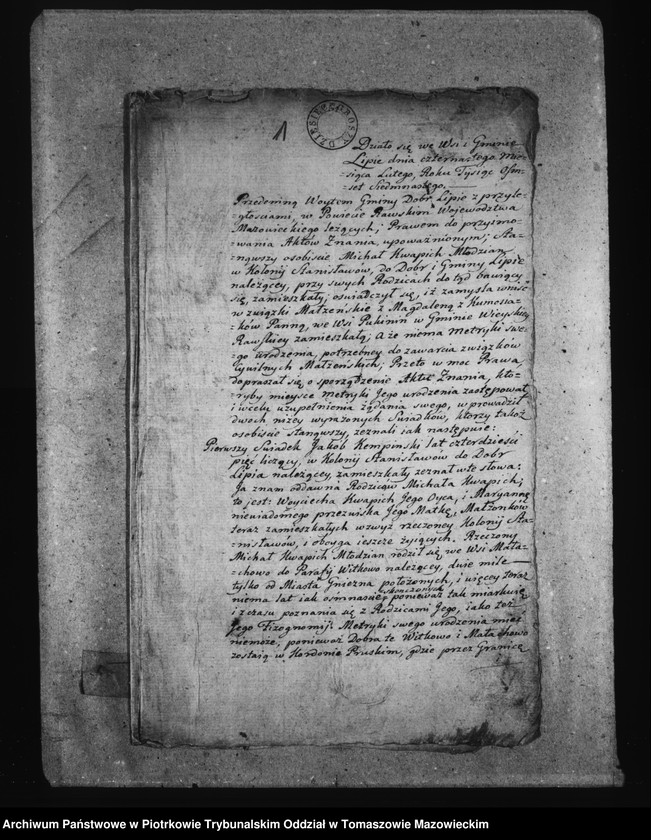 1
DZIESIĘĆ GROSZY
Działo się we Wsi i Gminie
Lipie dnia czternastego Mie-
siąca Lutego, Roku Tysiąc Ośm-
set Siedmnastego.
Przedemną Woytem Gminy Dobr Lipie z przyle-
=głościami, w Powiecie Rawskim Woiewodztwa
Mazowieckiego leżących; Prawem do przyimo-
=wania Aktów Znania, upoważnionym; Sta-
=nąwszy osobiście Michał Kwapich Młodzian
w Kolonij Stanisławów, do Dobr i Gminy Lipie
należącey, przy swych Rodzicach do tąd bawiący
się, zamieszkały; oświadczył się, iż zamyśla wniść
w związki Małżeńskie z Magdaleną z
=ków Panną, we Wsi Pukinin w Gminie Wieyskiey
Rawskiey zamieszkałą; A że niema Metryki swe-
=go urodzenia, potrzebney do zawarcia związków
Cywilnych Małżeńskich; Przeto w moc Prawa,
dopraszał się o sporządzenie Aktu Znania, któ-
=ryby mieysce Metryki Jego urodzenia zastępował
i w celu uzupełnienia żądania swego, wprowadził
dwóch niżey wyrażonych Swiadków, ktorzy takoż
osobiście stanąwszy, zeznali iak następuie:
Pierwszy Swiadek Jakób Kempinski lat czterdzieści
pięć liczący, w Kolonij Stanisławów do Dobr
Lipia należącey, zamieszkały zeznał w te słowa:
Ja znam oddawna Rodziców Michała Kwapich;
to jest: Woyciecha Kwapich Jego Oyca, i Maryannę
niewiadomego przezwiska Jego Matkę, Małżonków
teraz zamieszkałych w zwyż rzeczoney Kolonij Sta-
=nisławów, i oboyga ieszcze żyiących. Rzeczony
Michał Kwapich Młodzian rodził się we Wsi Mała-
=chowo do Parafij Witkowo należącey, dwie mile
tylko od Miasta Gniezna położonych, i więcey teraz
niema lat iak ośmnaście skończonych, ponieważ tak miarkuię
i z czasu poznania się z Rodzicami Jego, iako też
Jego Fizognomij: Metryki swego urodzenia mieć
niemoże, ponieważ Dobra te Witkowo i Małachowo
zostaią w Kordonie Pruskim, gdzie przez Granicę
Archiwum Państwowe w Piotrkowie Trybunalskim Oddział w Tomaszowie Mazowieckim